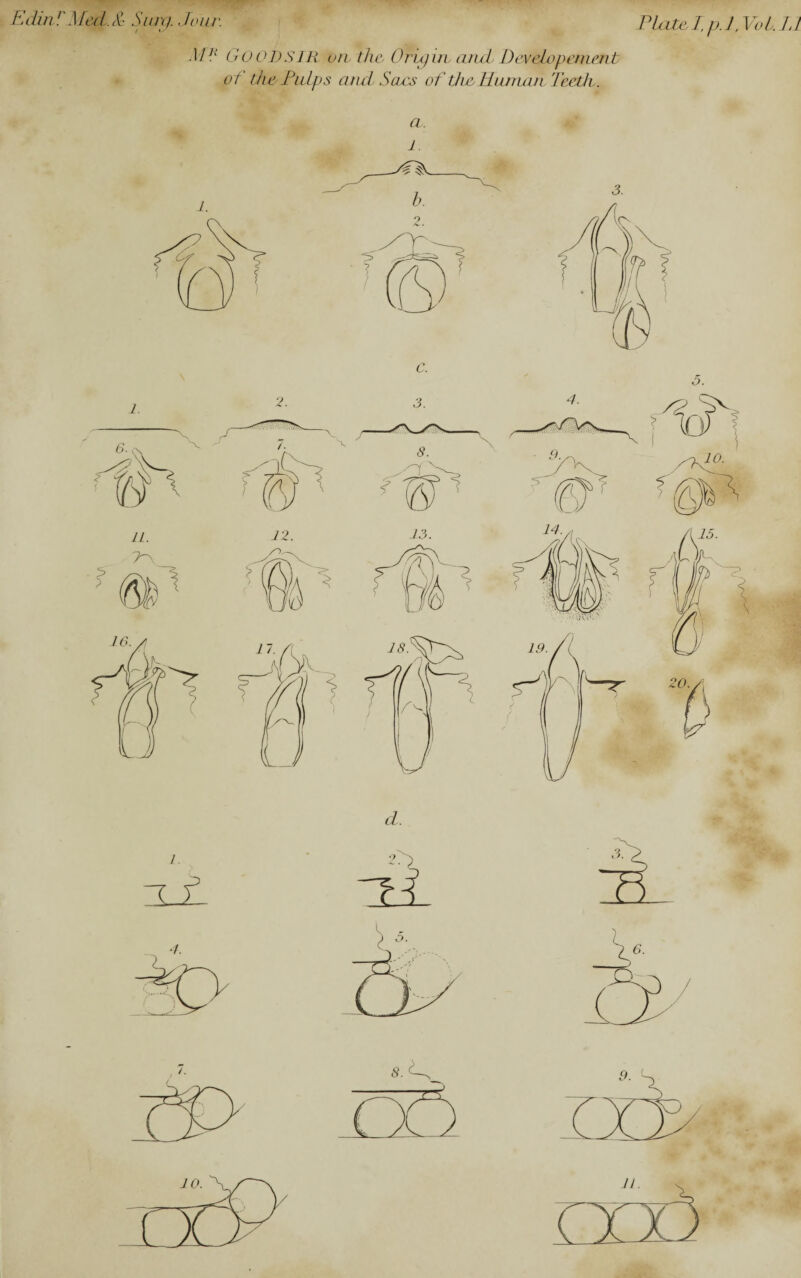 Edinr. Med. & Surg. Jour.
Plate I, p. 1, Vol. LI
MR GOODSIR on the Origin and Developement
of the Pulps and Sacs of the Human Teeth.
a.
1.
b.
1.
2.
3.
c.
1.
2.
3.
4.
5.
6.
7.
8.
9.
10.
11.
12.
13.
14.
15.
16.
17.
18.
19.
20.
d.
1.
2.
3.
4.
5.
6.
7.
8.
9.
10.
11.